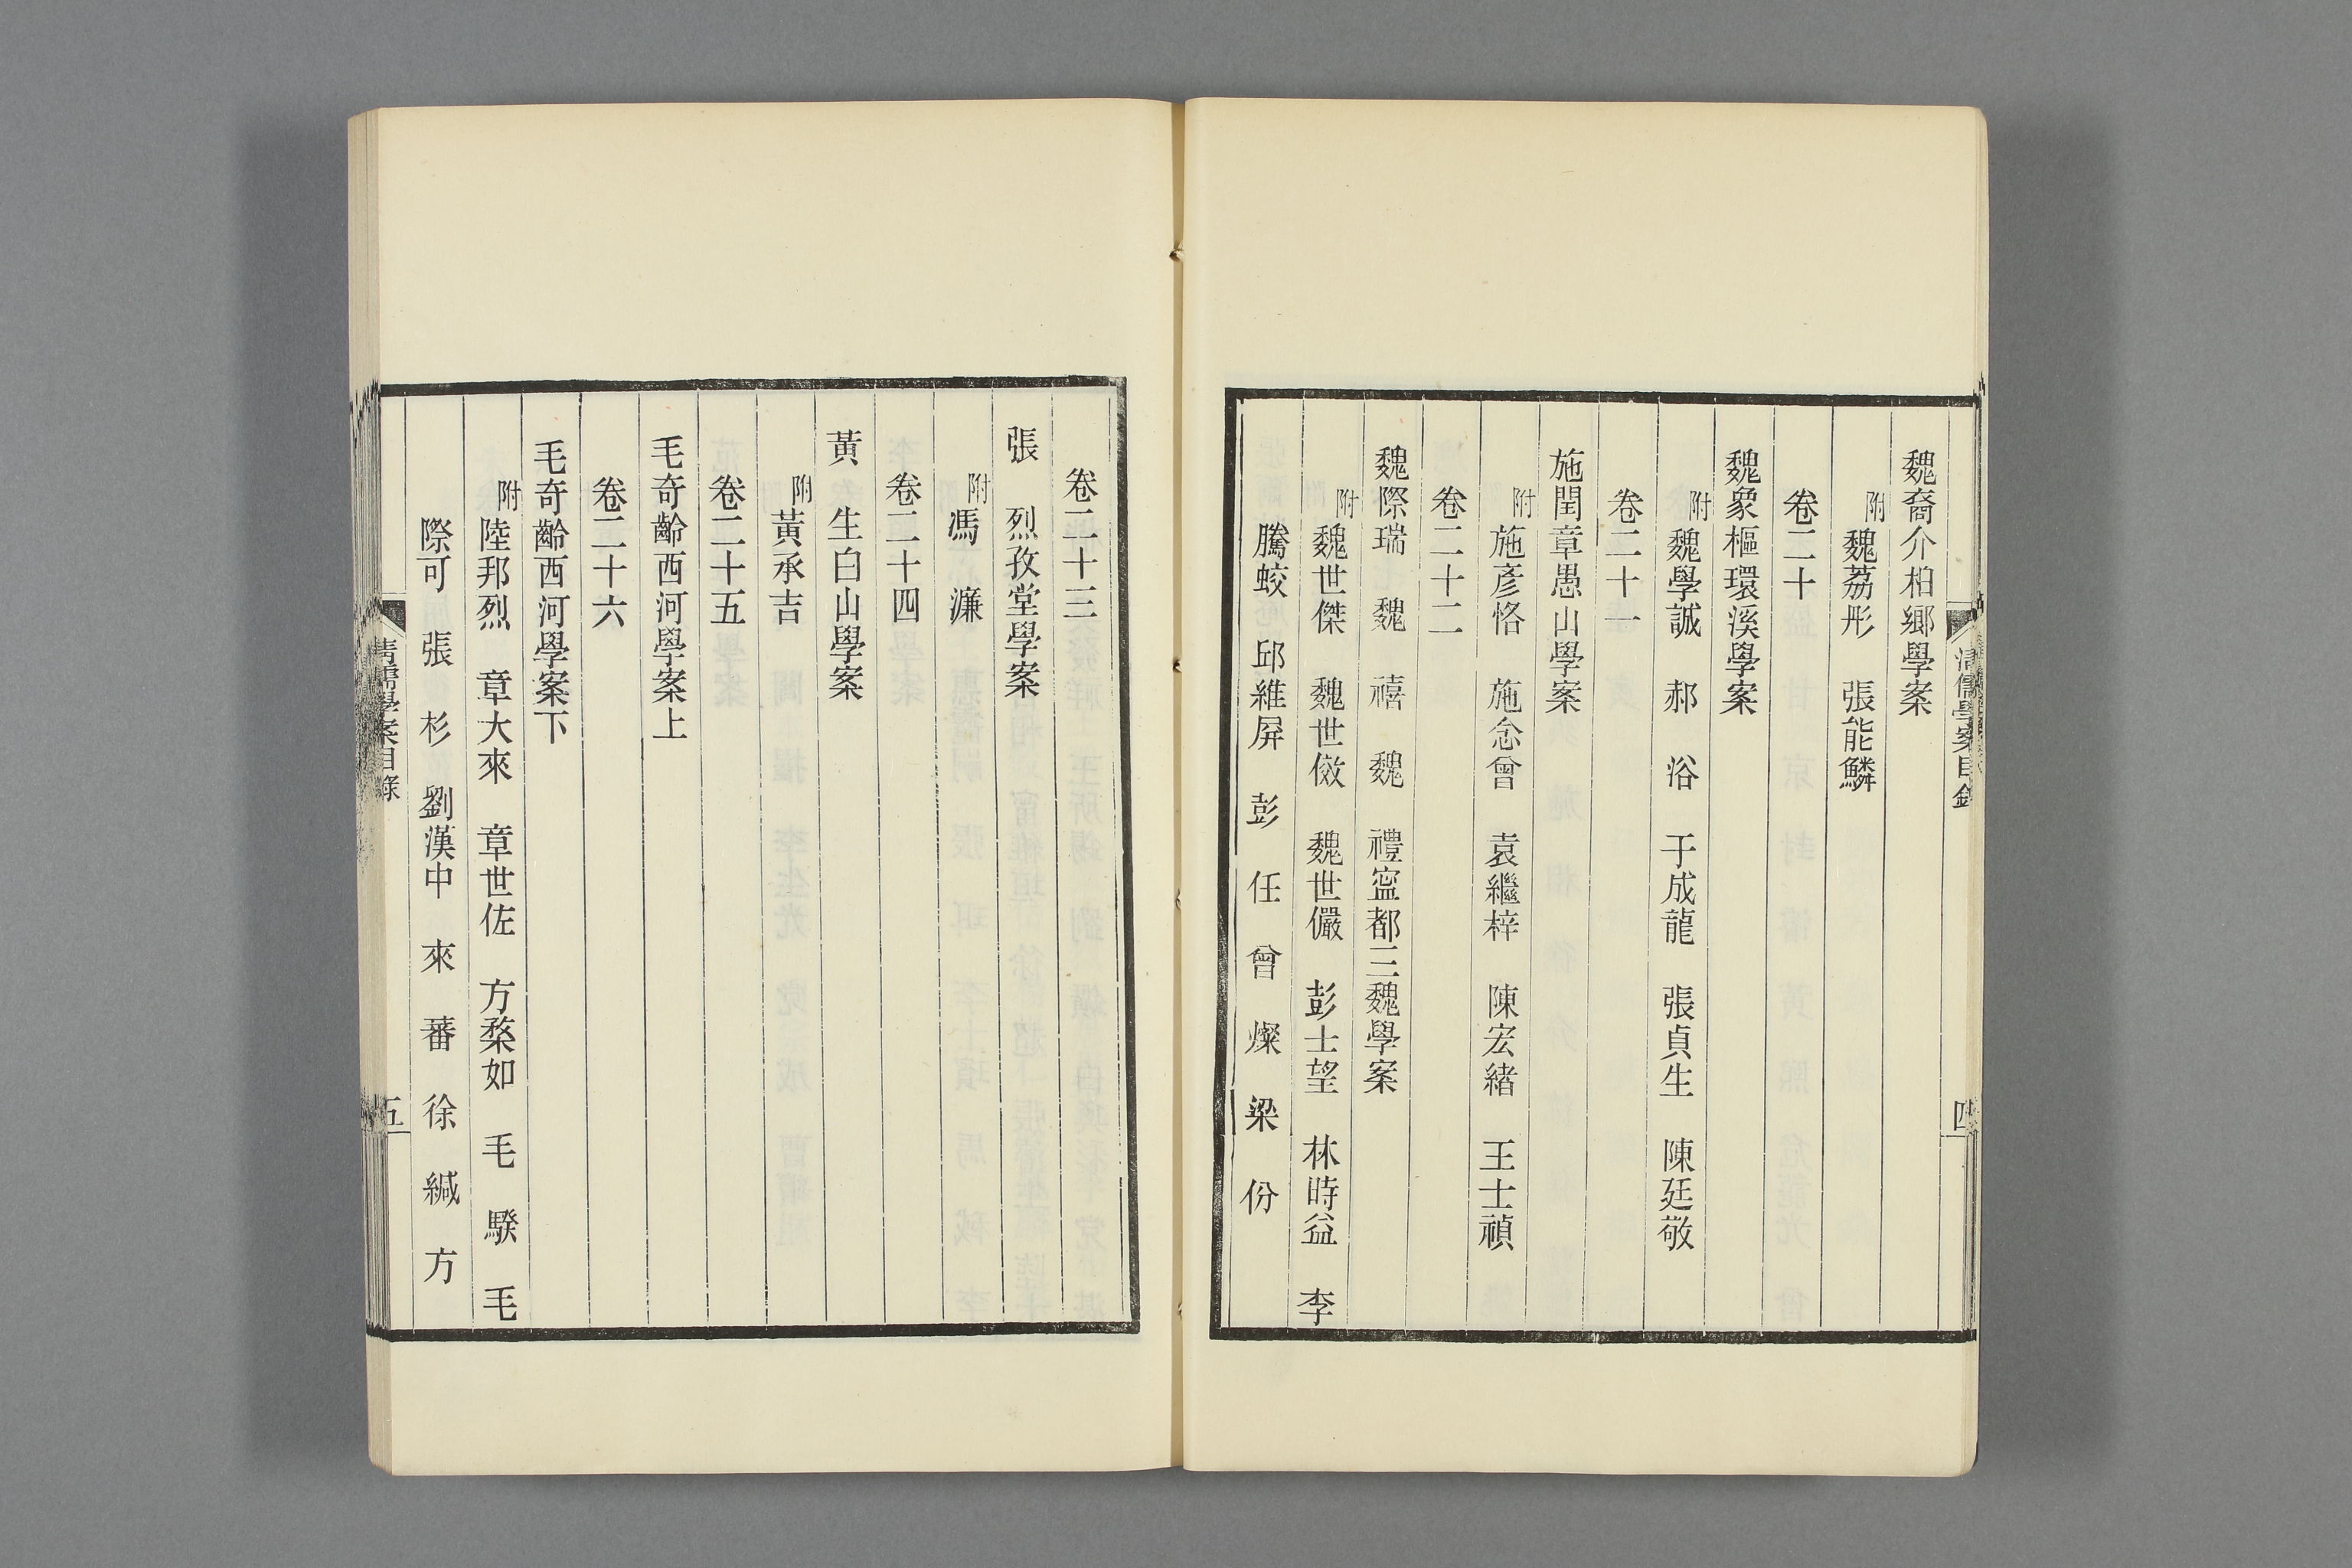 魏裔介柏鄉學案
附魏荔彤　張能鱗
卷二十
魏象樞環溪學案
附魏學誠　郝　浴　于成龍　張貞生　陳廷敬
卷二十一
施閏章愚山學案
附施彥恪　施念曾　袁繼梓　陳宏緒　王士禎
卷二十二
魏際瑞　魏　禧　魏　禮寍都三魏學案
附魏世傑　魏世傚　魏世儼　彭士望　林時益　李
騰蛟　邱維屏　彭　任　曾　燦　梁　份
清儒學案目錄
四
卷二十三
張　烈孜堂學案
附馮　濂
卷二十四
黃　生白山學案
附黃承吉
卷二十五
毛奇齡西河學案上
卷二十六
毛奇齡西河學案下
附陸邦烈　章大來　章世佐　方楘如　毛　騤　毛
際可　張　杉　劉漢中　來　蕃　徐　緘　方
清儒學案目錄
五